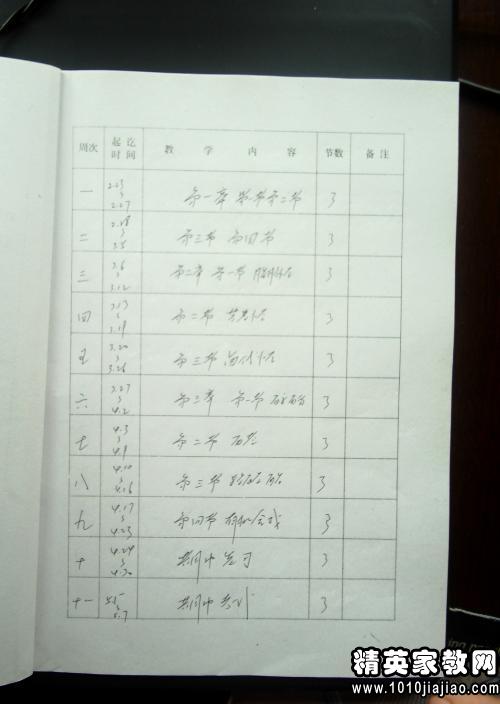 周次 起讫时间 教 学 内 容 节数 备注
一 2.23 2.27 第一章 第一节 第二节 3
二 2.28 3.5 第三节 第四节 3
三 3.6 3.12 第二章 第一节 脂肪烃 3
四 3.13 3.19 第二节 芳香烃 3
五 3.20 3.26 第三节 卤代烃 3
六 3.27 4.2 第三章 第一节 3
七 4.3 4.9 第二节 3
八 4.10 4.16 第三节 3
九 4.17 4.23 第四节 有机合成 3
十 4.24 4.30 期中 复习 3
十一 5.1 5.7 期中 考试 3
精英家教网
www.1010jiajiao.com